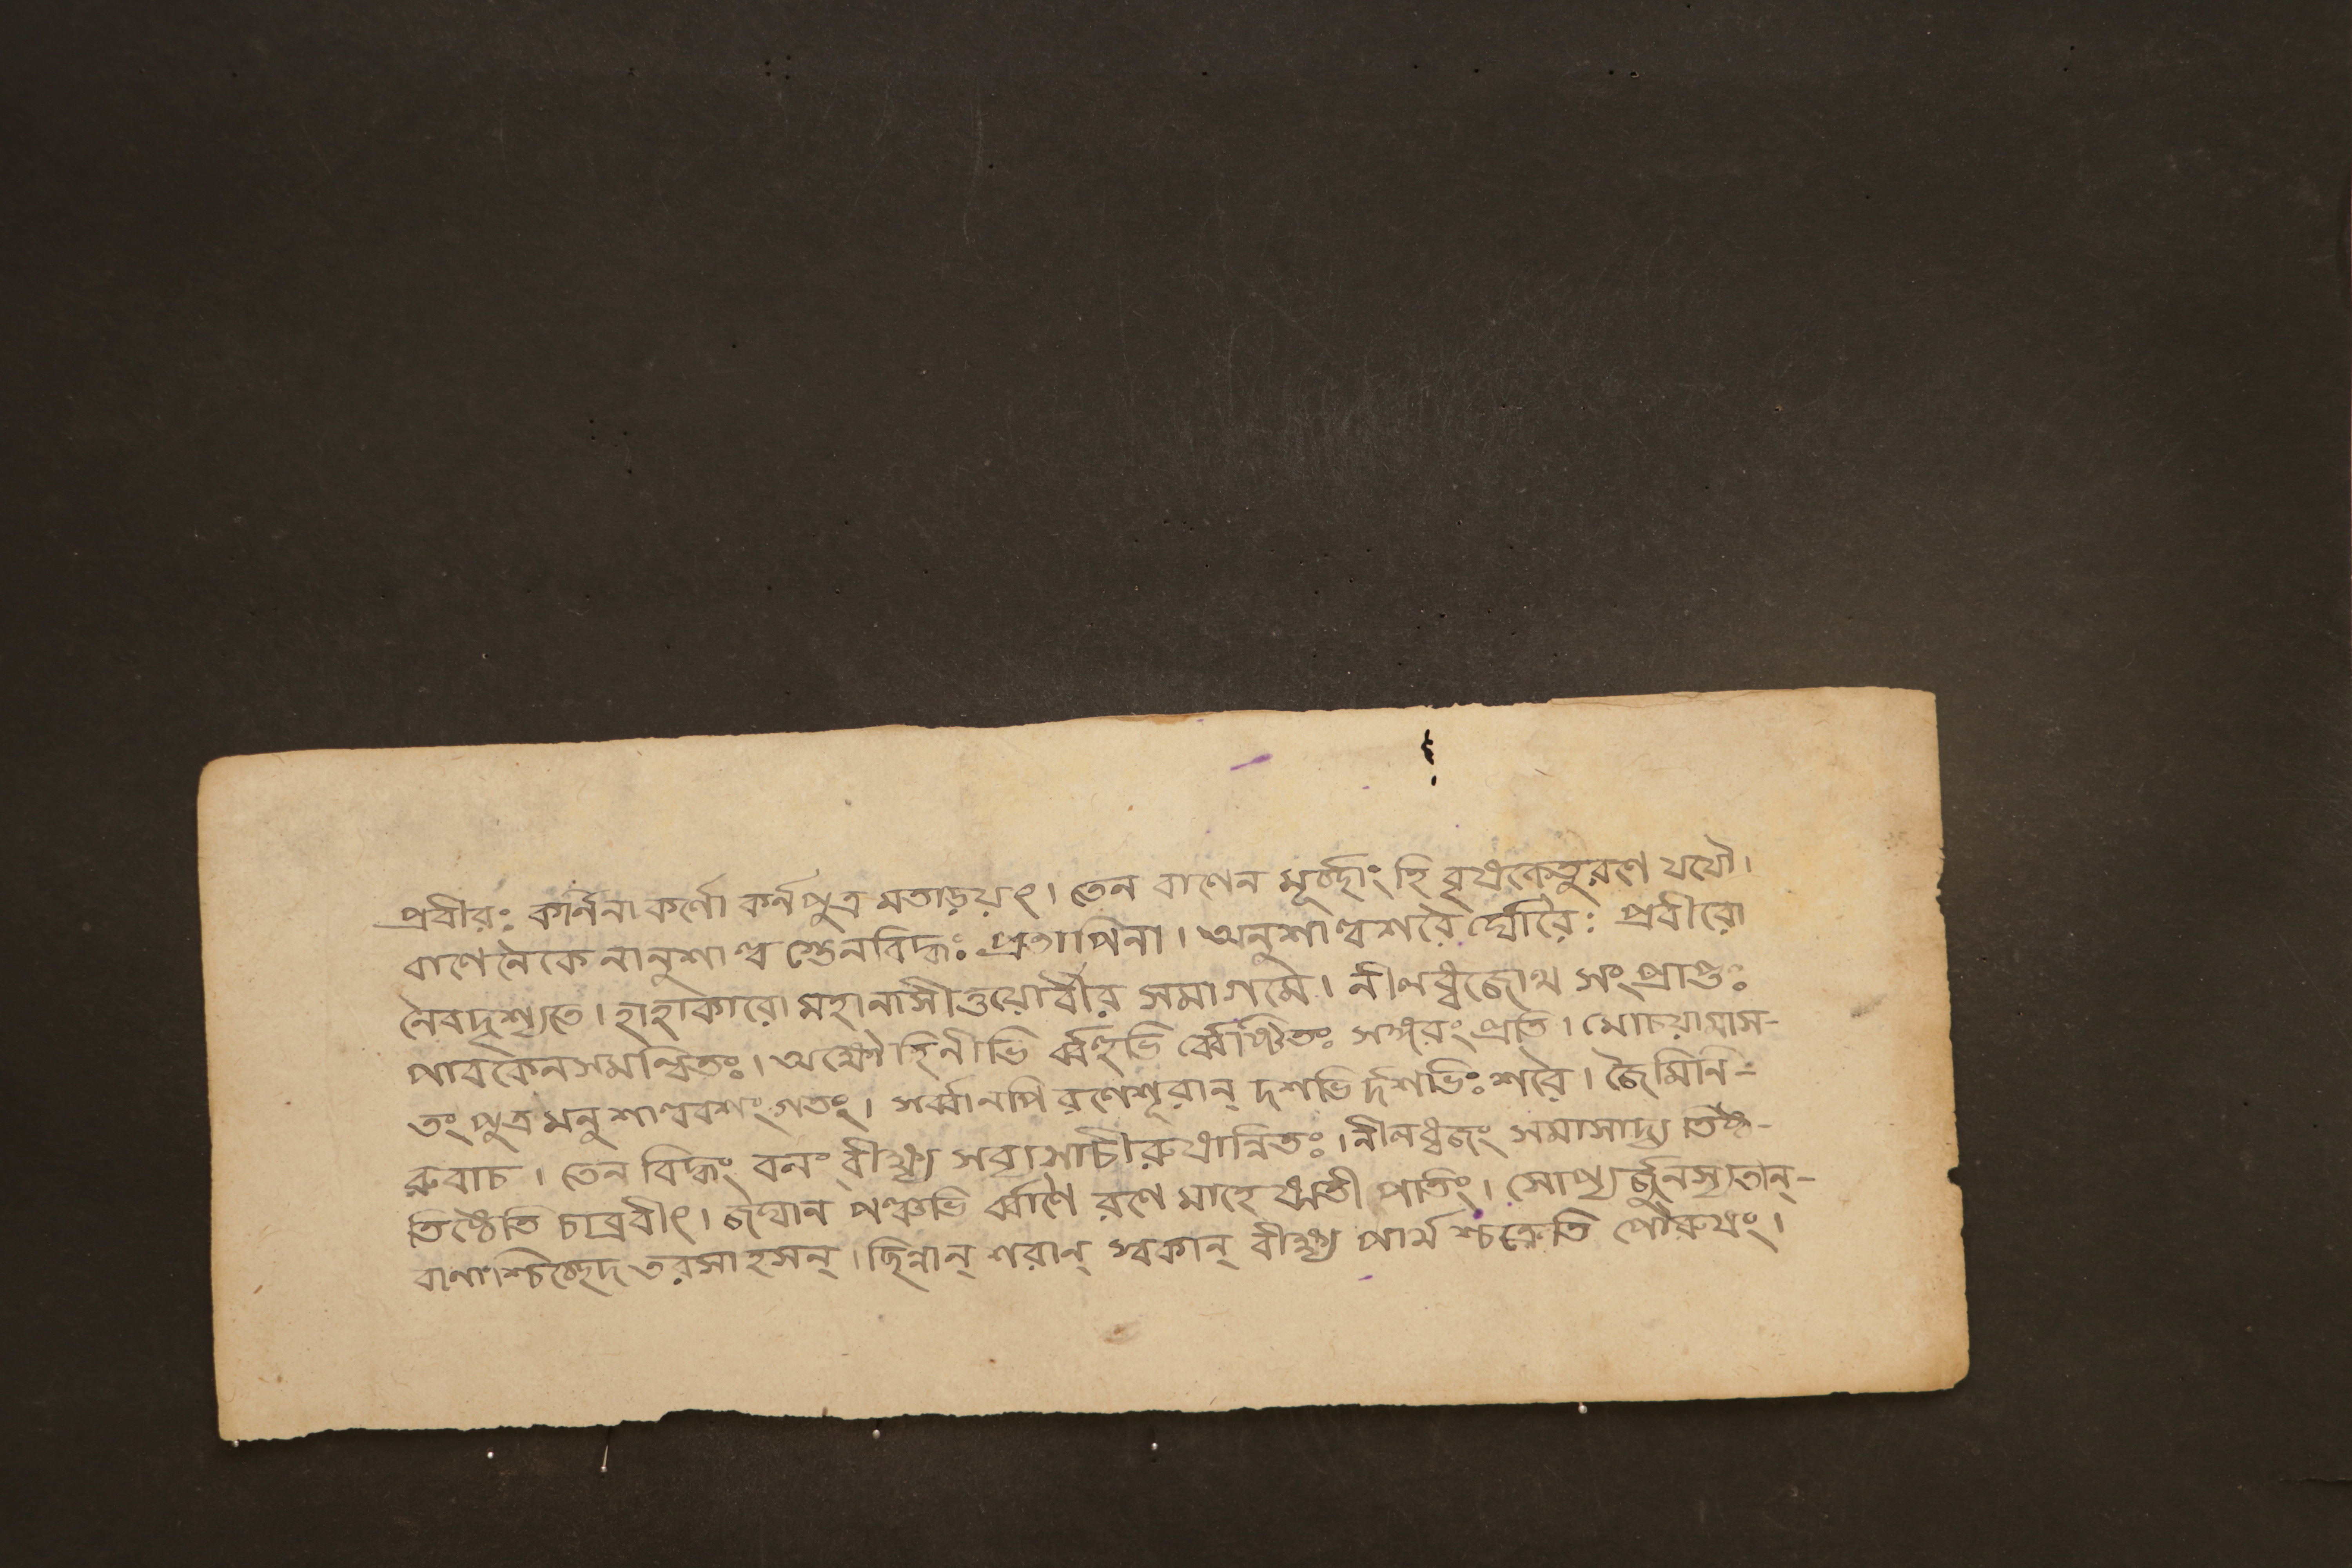 প্রবীরঃ কর্নিনা কর্ণো কর্নপুত্র মতাড়য়ৎ। তেন বাণেন মূর্চ্ছাং হি বৃষকেতুরণে যযৌ।
বাণেনৈকেনানুশাল্ব স্তেনবিদ্ধঃ প্রতাপিনা। অনুশাল্বশরৈ র্ঘোরৈঃ প্রবীরো
নৈবদৃশ্যতে। হাহাকারো মহানাসীত্তয়োর্বীর সমাগমে। নীলধ্বজোথ সংপ্রাপ্তঃ
পাবকেনসমন্বিতঃ। অক্ষৌহিনীভি র্ব্বহুভি র্ব্বেষ্টিতঃ সঙ্গরং প্রতি। মোচয়ামাস-
তং পুত্র মনুশাল্ববশং গতং। সর্ব্বানপি রণেশূরান্ দশভি র্দশভিঃ শরৈ। জৈমিনি-
রুবাচ। তেন বিদ্ধং বলং বীক্ষ্য সব্যসাচীরুষান্বিতঃ। নীলধ্বজং সমাসাদ্য তিষ্ঠ-
তিষ্ঠেতি চাব্রবীৎ। জঘান পঞ্চভি র্ব্বাণৈ রণে মাহেষ্মতী পতিং। সোপ্য র্জুনস্যতান্-
বানাংশ্চিচ্ছেদ তরসাহসন্। ছিন্নান্ শরান্ স্বকান্ বীক্ষ্য পার্থ শ্চক্রেতি পৌরুষং।